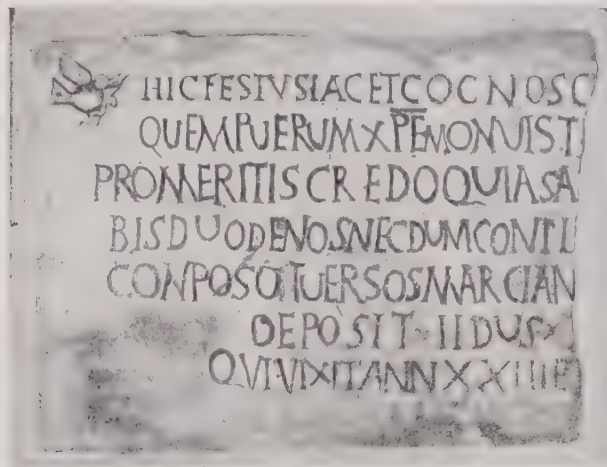 HIC FESTVS IACET COCNOSC
QUEM PUERUM XPE MONUISTI
PRO MERITIS CREDO QUIA SA
BIS DUODENOS NECDUM CONTI
CONPOSUIT UERSOS MARCIAN
DEPOSIT IIDUS
QVI VIXIT ANN XXIIII